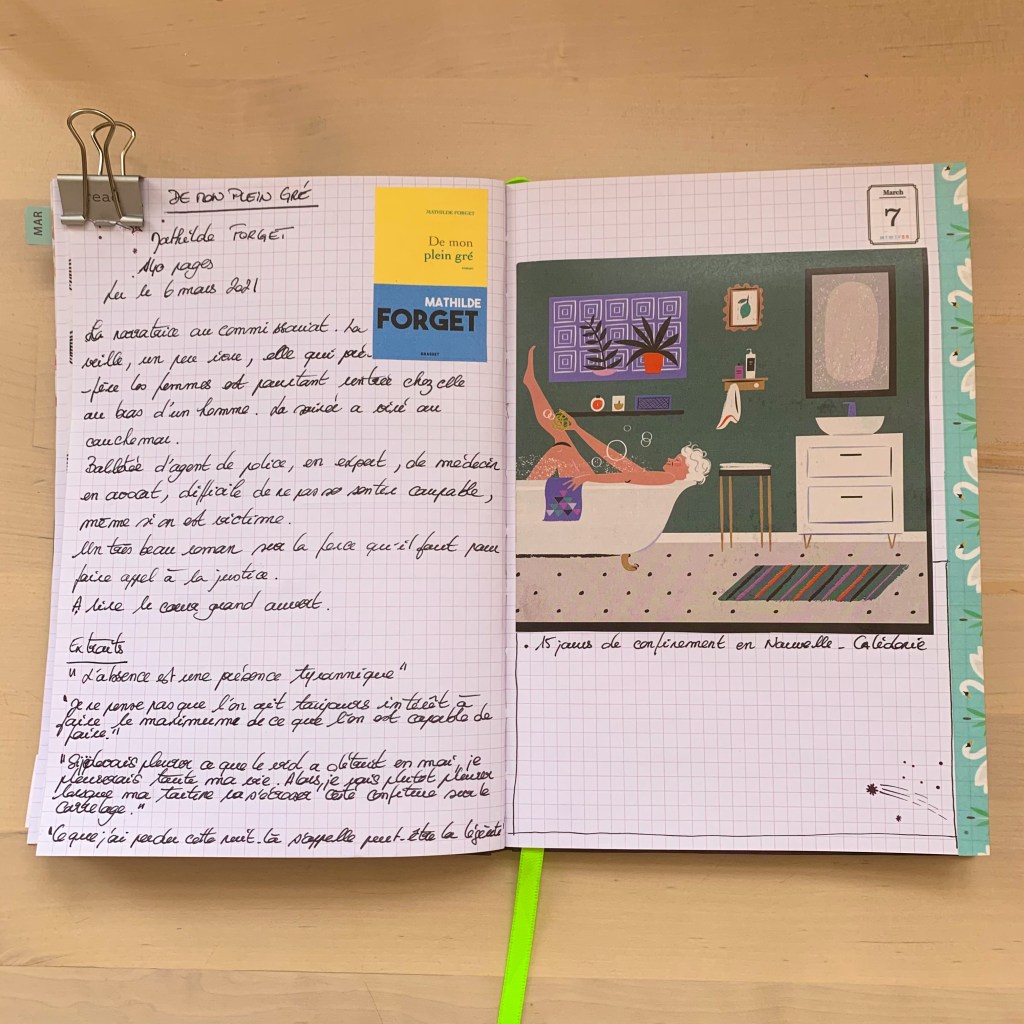 MAR
read
DE MON PLEIN GRÉ
Mathilde FORGET
140 pages
Lu le 6 mars 2021
La narratrice au commissariat. La
veille, un peu ivre, elle qui pré-
-fère les femmes est pourtant rentrée chez elle
au bras d'un homme. La soirée a viré au
cauchemar.
Ballotée d'agent de police, en expert, de médecin
en avocat, difficile de ne pas se sentir coupable,
même si on est victime.
Un très beau roman sur la force qu'il faut pour
faire appel à la justice.
A lire le coeur grand ouvert.
Extraits
"L'absence est une présence tyrannique"
"Je ne pense pas que l'on ait toujours intérêt à
faire le maximum de ce que l'on est capable de
faire."
"Si je devais pleurer ce que le viol a détruit en moi, je
pleurerais toute ma vie. Alors, je vais plutôt pleurer
lorsque ma tartine va s'écraser côté confiture sur le
carrelage."
"Ce que j'ai perdu cette nuit-là s'appelle peut-être la légèreté
MATHILDE FORGET
De mon
plein gré
roman
MATHILDE
FORGET
GRASSET
March
7
. 15 jours de confinement en Nouvelle-Calédonie